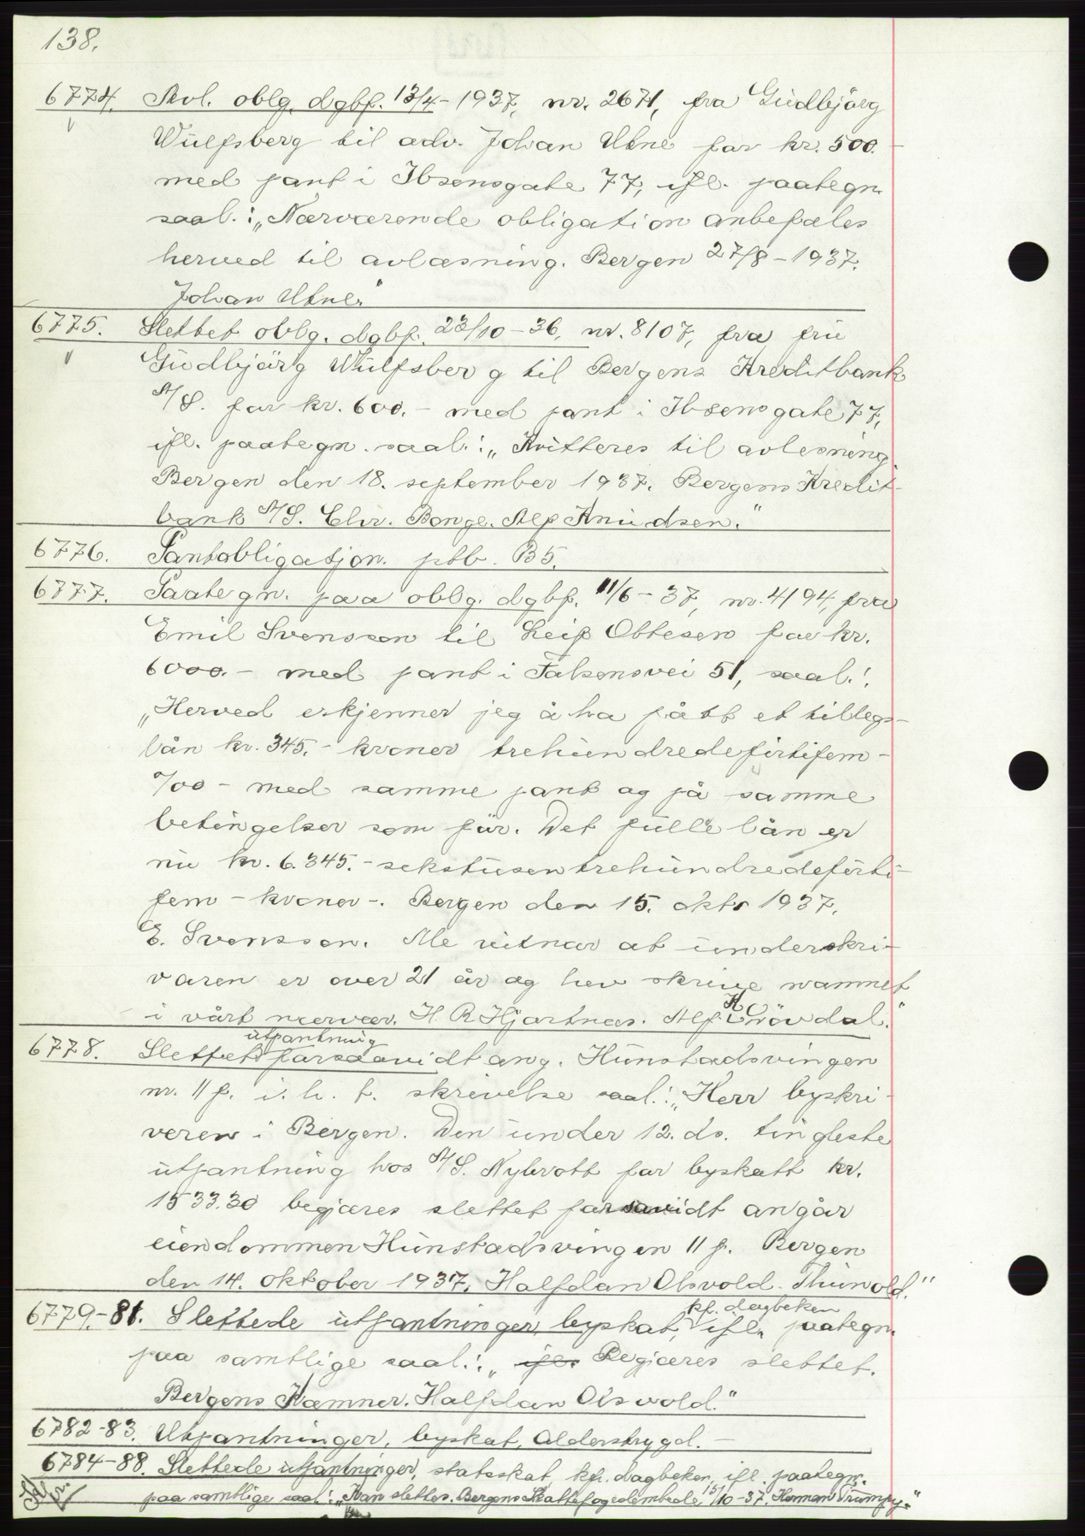 138.
6774. Avl. oblg. dgbf. 13/4-1937, nr. 2671, fra Gudbjörg
Wulfsberg til adv. Johan Utne for kr. 500.-
med pant i Ibsensgate 77, ifl. paategn.
saal.: „Nærværende obligation anbefales
herved til avlæsning. Bergen 27/8-1937.
Johan Utne."
6775. Slettet oblg. dgbf. 23/10-36, nr. 8107, fra fru
Gudbjärg Wulfsberg til Bergens Kreditbank
A/S. for kr. 600.- med pant i Ibsensgate 77,
ifl. paategn. saal.: „Kvitteres til avlesning
Bergen den 18. september 1937. Bergens Kredit-
bank A/S. Chr. Bonge. Alf Knudsen."
6776. Pantobligasjon. ptb. B5.
6777. Paategn. paa oblg. dgbf. 11/6-37, nr. 4194, fra
Emil Svensson til Leif Obtesen for kr.
6000.- med pant i Falsensvei 51, saal.:
„Herved erkjenner jeg å ha fått et tillegs-
lån kr. 345.- kroner trehundredeförtifem-
%00- med samme pant og på samme
betingelser som för. Det fulle lån er
nu kr. 6.345.- sekstusentrehundredeförti-
fem - kroner -. Bergen den 15. okt. 1937.
E. Svensson. Me vitnar at underskri-
varen er over 21 år og hev skrive namnet
i vårt nærvær. H. R. Hjartnes. Alf Grövdal."
6778. Slettet utpantning forsaavidt ang. Hunstadsvingen
nr. 11 f. i. h. t. skrivelse saal.: „Herr byskri-
veren i Bergen. Den under 12. ds. tingleste
utpantning hos A/S. Nybrott for byskatt kr.
1533.30 begjæres slettet forsavidt angår
eiendommen Hunstadsvingen 11 f. Bergen
den 14. oktober 1937. Halfdan Olsvold. Thunold."
6779-81. Slettede utpantninger, byskat, kfr. dagboken ifl. paategn.
paa samtlige saal.: „Begjæres slettet.
Bergens Kæmner. Halfdan Olsvold."
6782-83. Utpantninger, byskat, Alderstrygd.-
6784-88. Slettede utpantninger, statsskat, kfr. dagboken, ifl. paategn.
paa samtlige saal.: „Kan slettes. Bergens Skattefogedembede 15/10-37. Herman Trumpy."